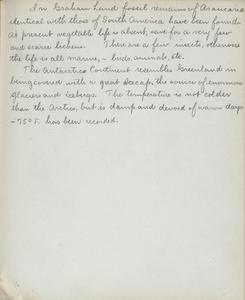 In Graham Land fossil remains of Araucaria
identical with those of South America have been found.
At present vegetable life is absent, save for a very few
and scarce lichens. There are a few insects, otherwise
the life is all marine, - birds, animals, etc.
The Antarctic Continent resembles Greenland in
being covered with a great icecap, the source of enormous
glaciers and icebergs. The temperature is not colder
than the Arctic, but is damp and devoid of warm days
-75° F. has been recorded.